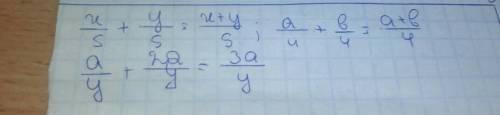 x/5 + y/5 = x+y/5 ; a/4 + в/4 = a+в/4
a/y + 2a/y = 3a/y